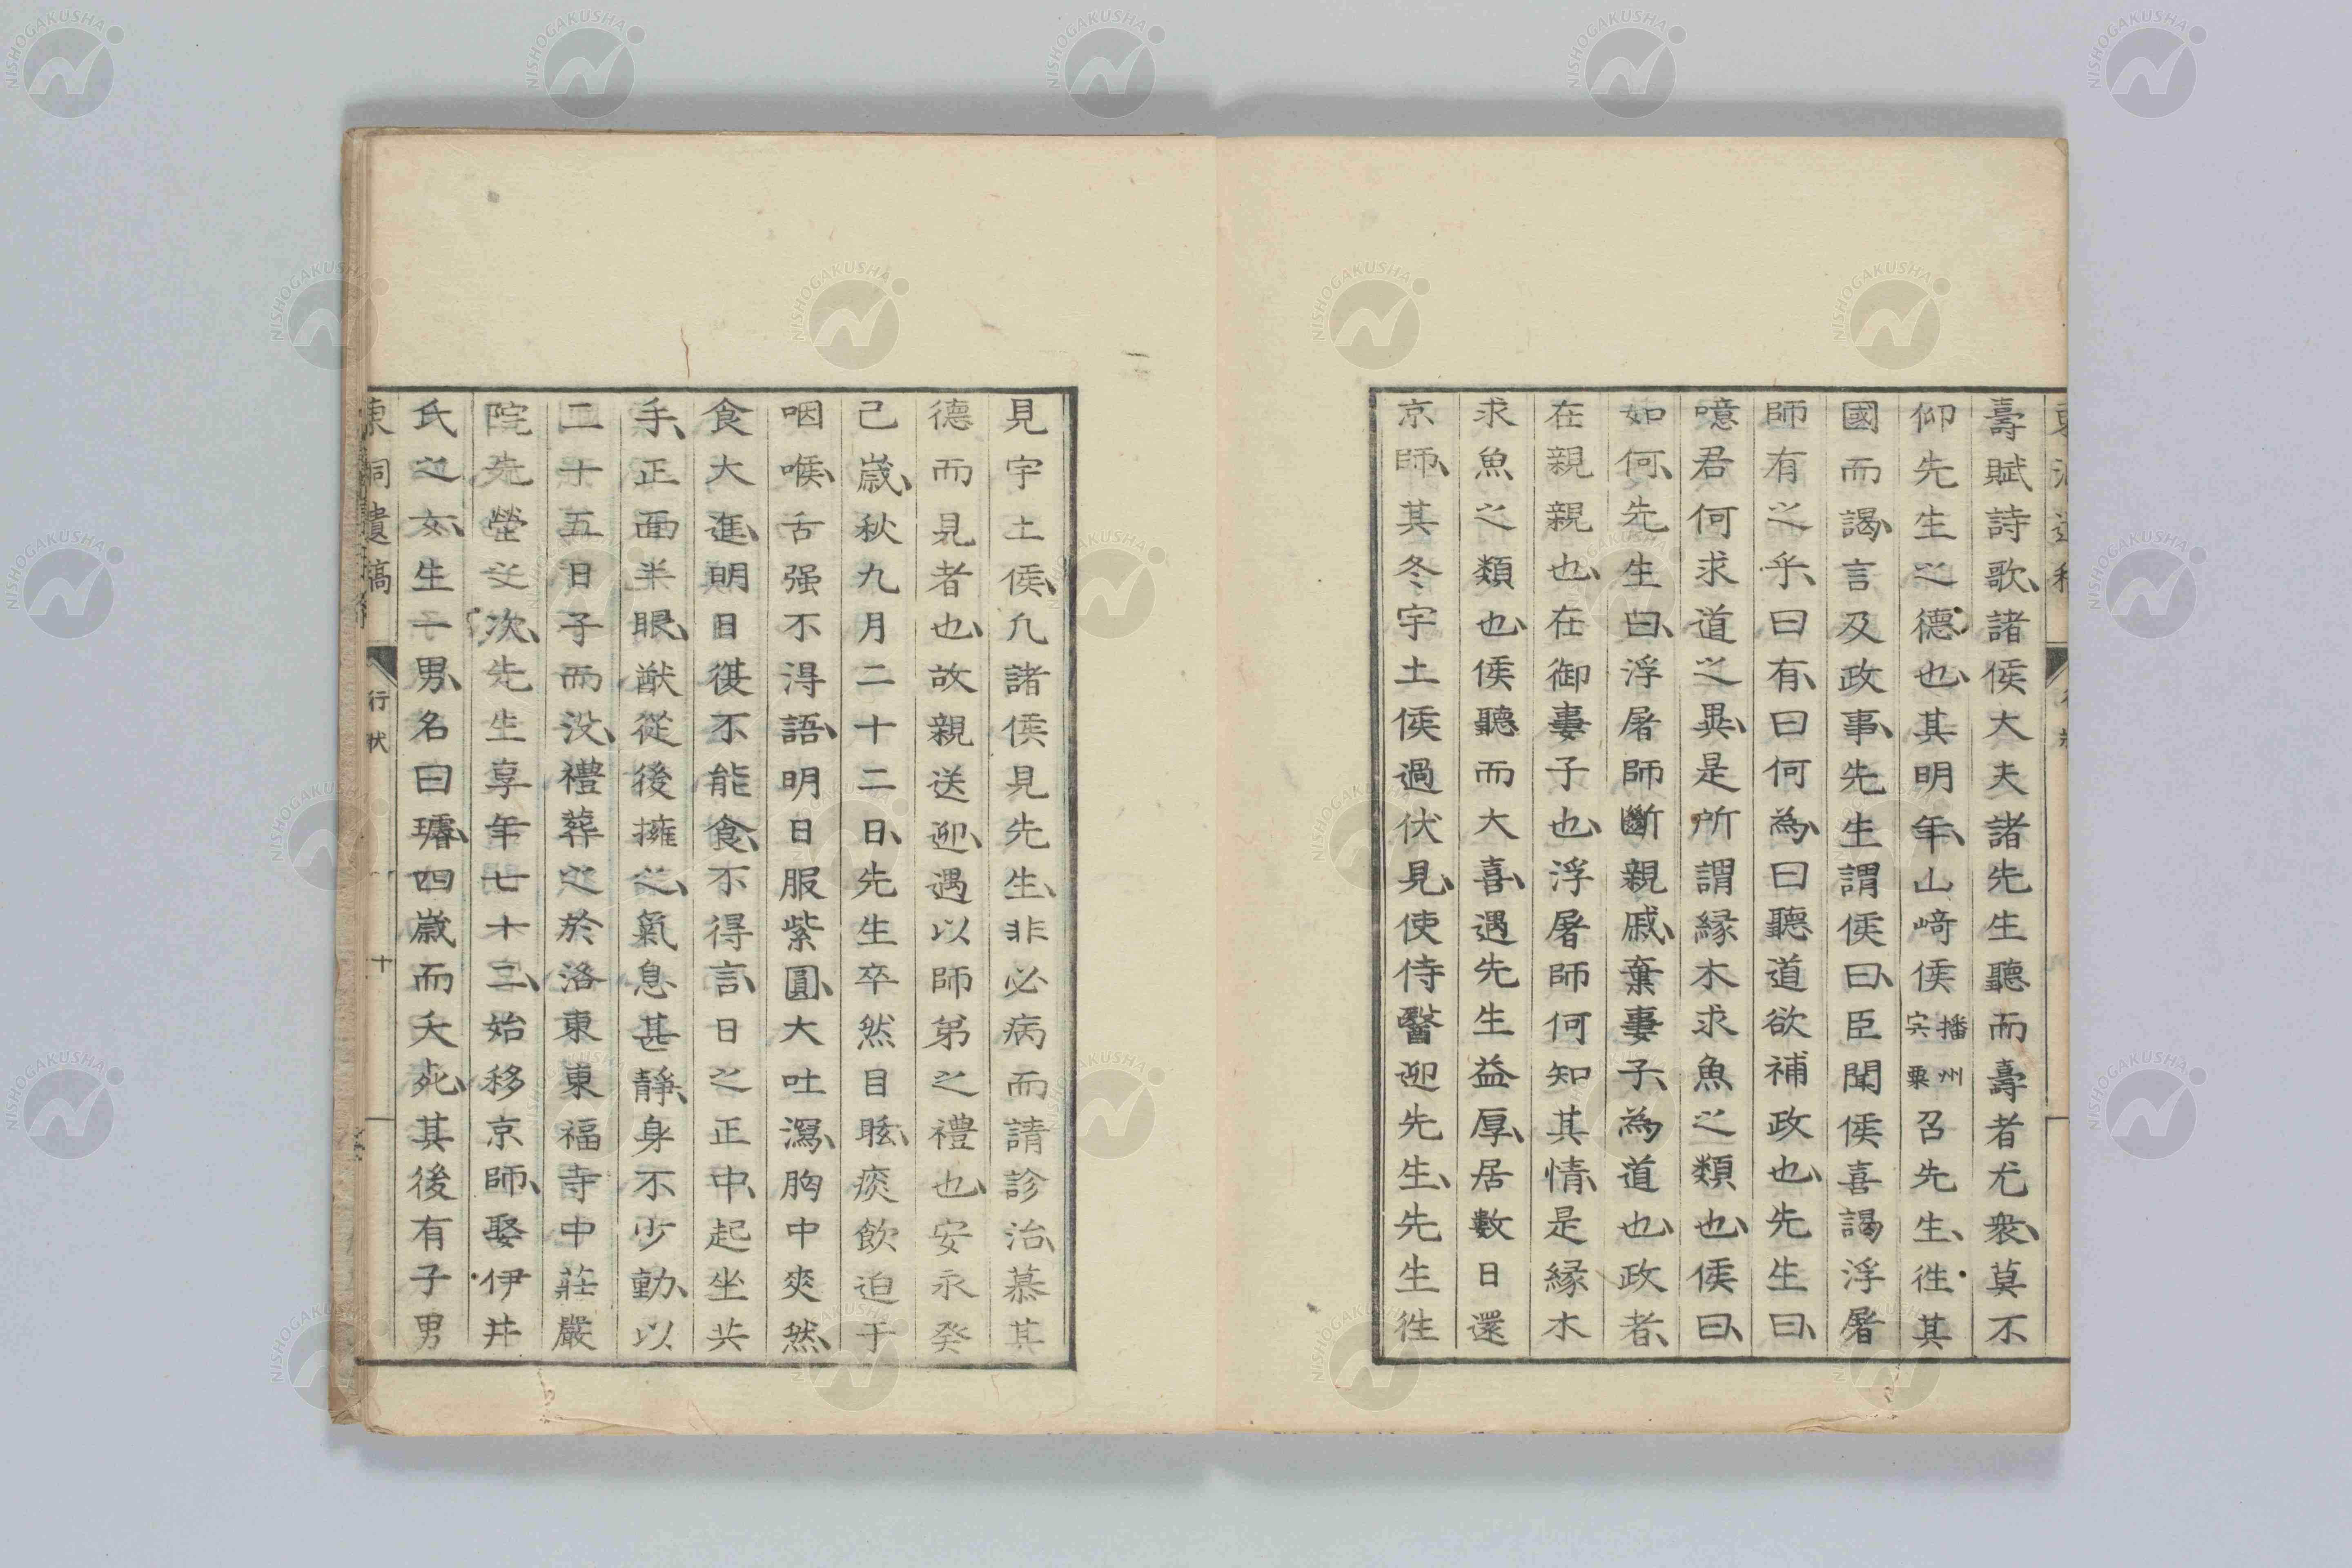 壽賦詩歌、諸侯大夫諸先生聽而壽者尤衆、莫不
仰先生之德也、其明年、山﨑侯播州宍粟召先生、往其
國而謁、言及政事、先生謂侯曰、臣聞侯喜謁浮屠
師有之乎、曰有、曰何為、曰聽道欲補政也、先生曰、
噫君何求道之異、是所謂縁木求魚之類也、侯曰、
如何、先生曰、浮屠師斷親戚、棄妻子、為道也、政者、
在親親也、在御妻子也、浮屠師何知其情、是縁木
求魚之類也、侯聽而大喜、遇先生益厚、居數日還
京師、其冬宇土侯過伏見、使侍醫迎先生、先生往
見宇土侯、凡諸侯見先生、非必病而請診治、慕其
德而見者也、故親送迎、遇以師弟之禮也、安永癸
己歳、秋九月二十二日、先生卒然目眩、痰飲迫于
咽喉、舌强不得語、明日服紫圓、大吐瀉、胸中爽然、
食大進、明日復不能食、不得言、日之正中、起坐共
手、正面半眼、猷從後擁之、氣息甚靜、身不少動、以
二十五日子而没、禮葬之於洛東東福寺中莊嚴
院先塋之次、先生享年七十二、始移京師、娶伊井
氏之女、生一男、名曰璿、四歳而夭死、其後有子男
東洞遺稿 行状 十